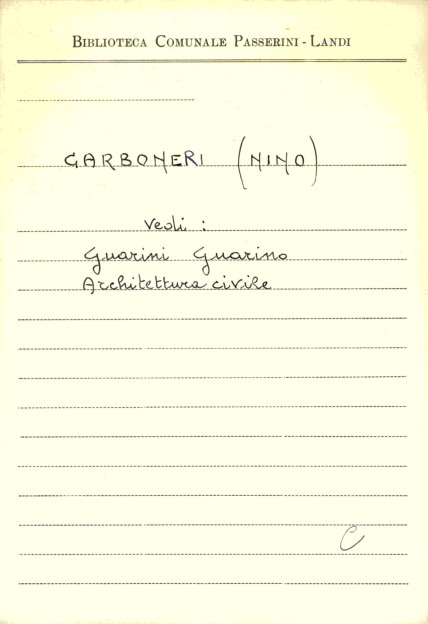 BIBLIOTECA COMUNALE PASSERINI - LANDI
CARBONERI (NINO)
Vedi :
Guarini Guarino
Architettura civile
C